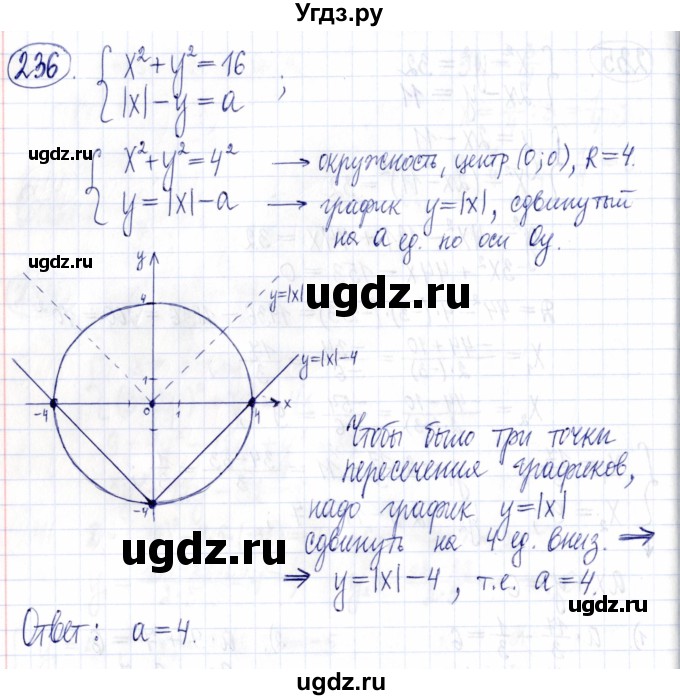 Угдз.ру
236. { x² + y² = 16
|x| − y = a ;
ugdz.ru
{ x² + y² = 4² → окружность, центр (0; 0), R = 4.
y = |x| − a → график y = |x|, сдвинутый
на a ед. по оси Oy.
ugdz.ru
y
4
y=|x|
ugdz.ru
y=|x|−4
1
−4 0 1 4 x
−4
Чтобы было три точки
пересечения графиков,
надо график y = |x|
сдвинуть на 4 ед. вниз. ⇒
ugdz.ru
ugdz.ru
⇒ y = |x| − 4, т.е. a = 4.
Ответ: a = 4.
ugdz.ru
ugdz.ru